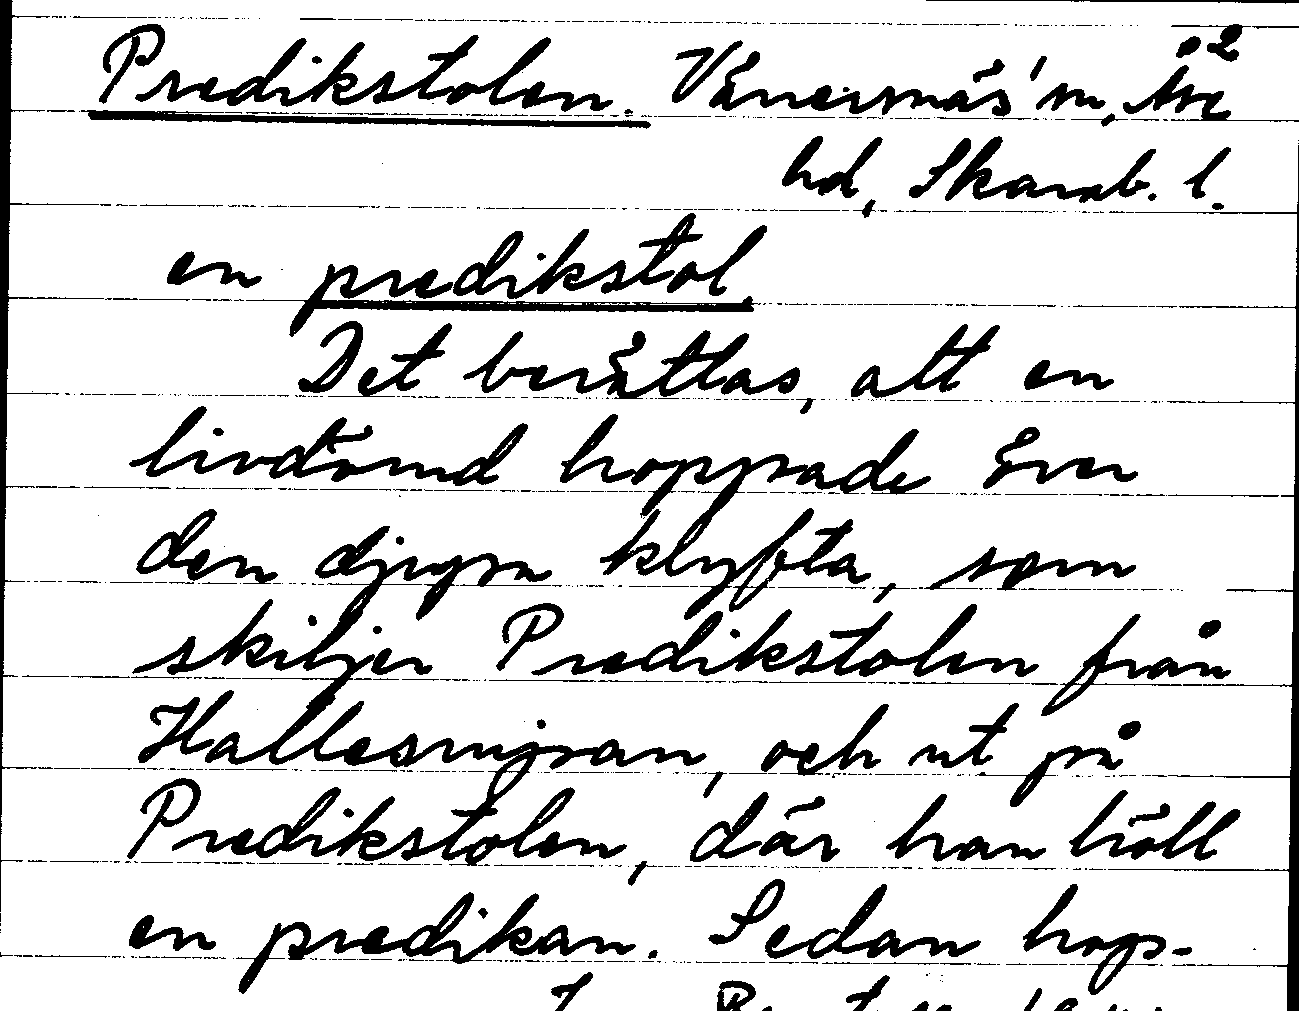 Predikstolen. Vänersnäs' sn, Åse
hd, Skarab. l.
en predikstol.
Det berättas, att en
livdömd hoppade över
den djupa klyfta, som
skiljer Predikstolen från
Hallesnipan, och ut på
Predikstolen, där han höll
en predikan. Sedan hop-